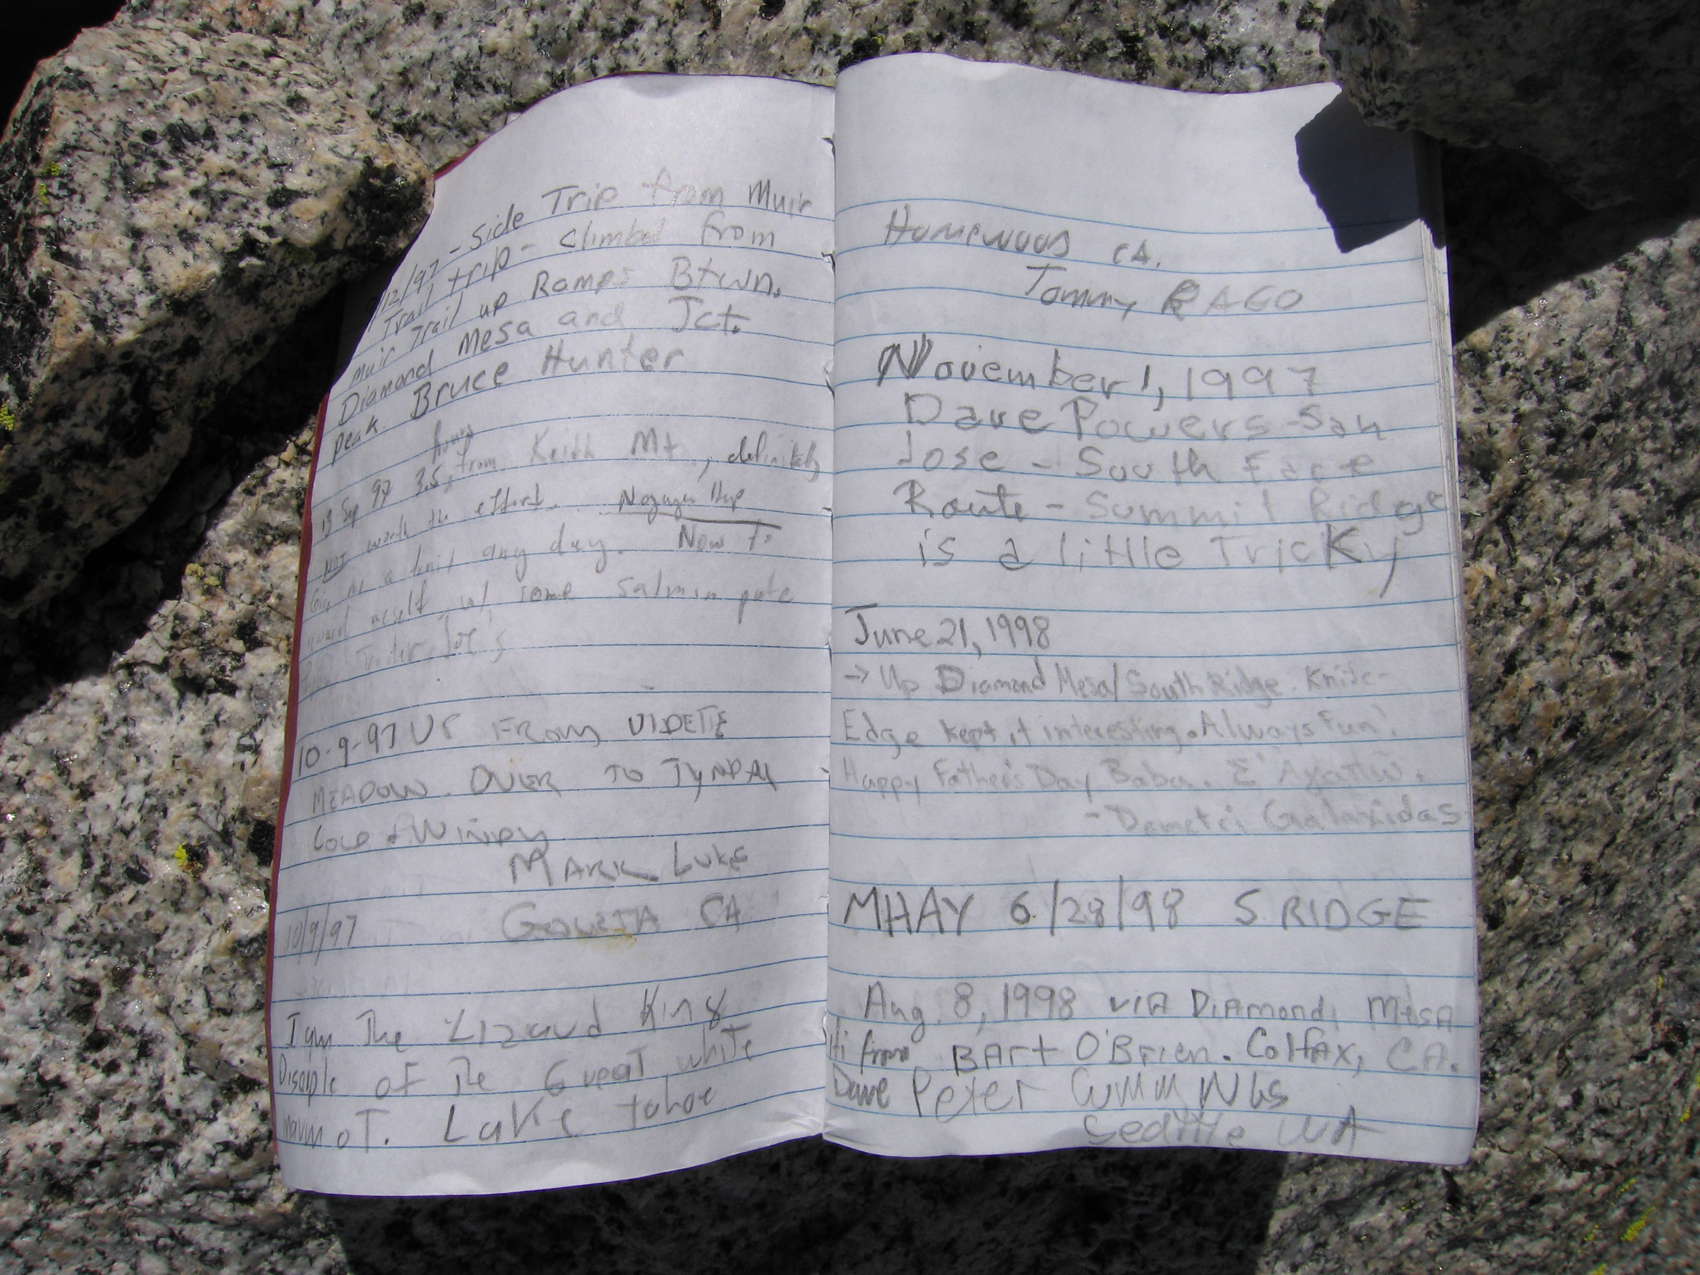 12/97 - Side Trip from Muir
Trail trip - climbed from
Muir Trail up Ramps Btwn.
Diamond Mesa and Jct.
peak Bruce Hunter
hours
13 Sep 97 3.5, from Keith Mt, definitely
NOT worth the effort.
any day. Now to
myself w/ some salmon pate
Trader Joe's
10-9-97 UP FROM VIDETTE
MEADOW. OVER TO TYNDAL
COLD & WINDY
MARK LUKE
GOLETA CA
10/9/97
I am The Lizard King
Disciple of The Great white
marmot. Lake tahoe
Homewood CA.
Tommy RAGO
November 1, 1997
Dave Powers - San
Jose - South Face
Route - Summit Ridge
is a little Tricky
June 21, 1998
→ Up Diamond Mesa/South Ridge. Knife-
Edge kept it interesting. Always Fun!
Happy Father's Day Baba. Σ' Αγαπώ.
- Demetri Galaxidas
MHAY 6/28/98 S RIDGE
Aug. 8, 1998 VIA DIAMOND MESA
Hi from BArt O'Brien. Colfax, CA.
Dave Peter
Seattle WA